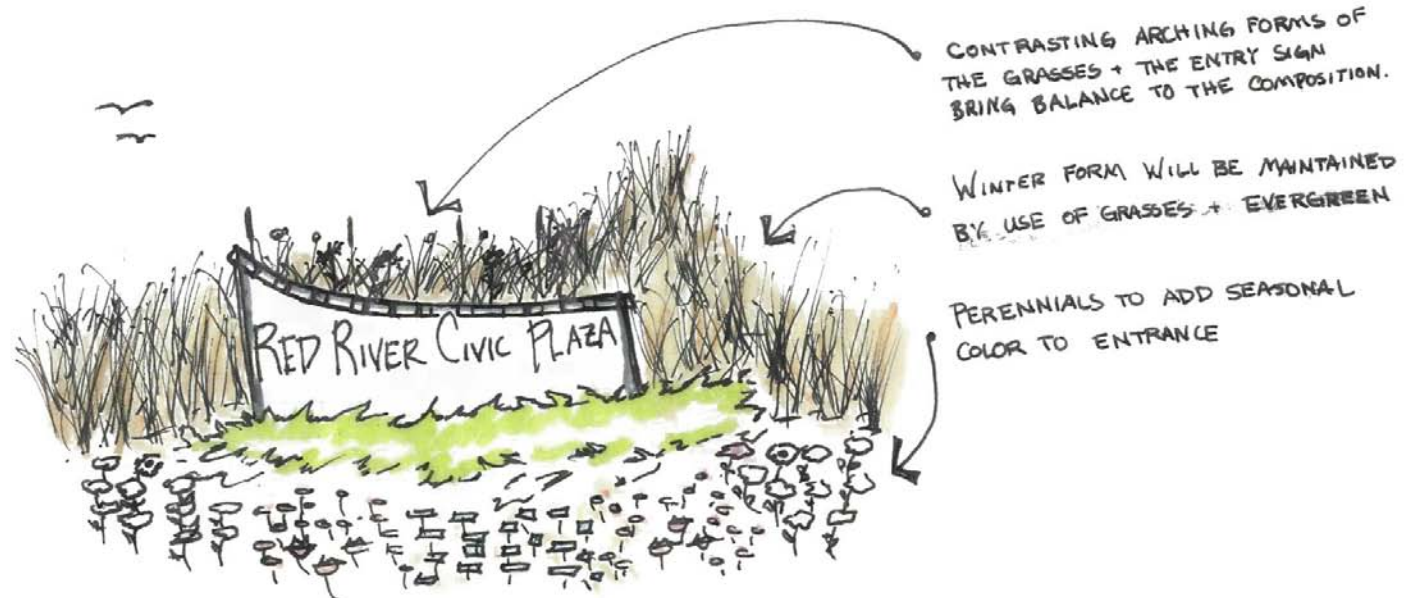 CONTRASTING ARCHING FORMS OF
THE GRASSES + THE ENTRY SIGN
BRING BALANCE TO THE COMPOSITION.
WINTER FORM WILL BE MAINTAINED
BY USE OF GRASSES + EVERGREEN
PERENNIALS TO ADD SEASONAL
COLOR TO ENTRANCE
RED RIVER CIVIC PLAZA